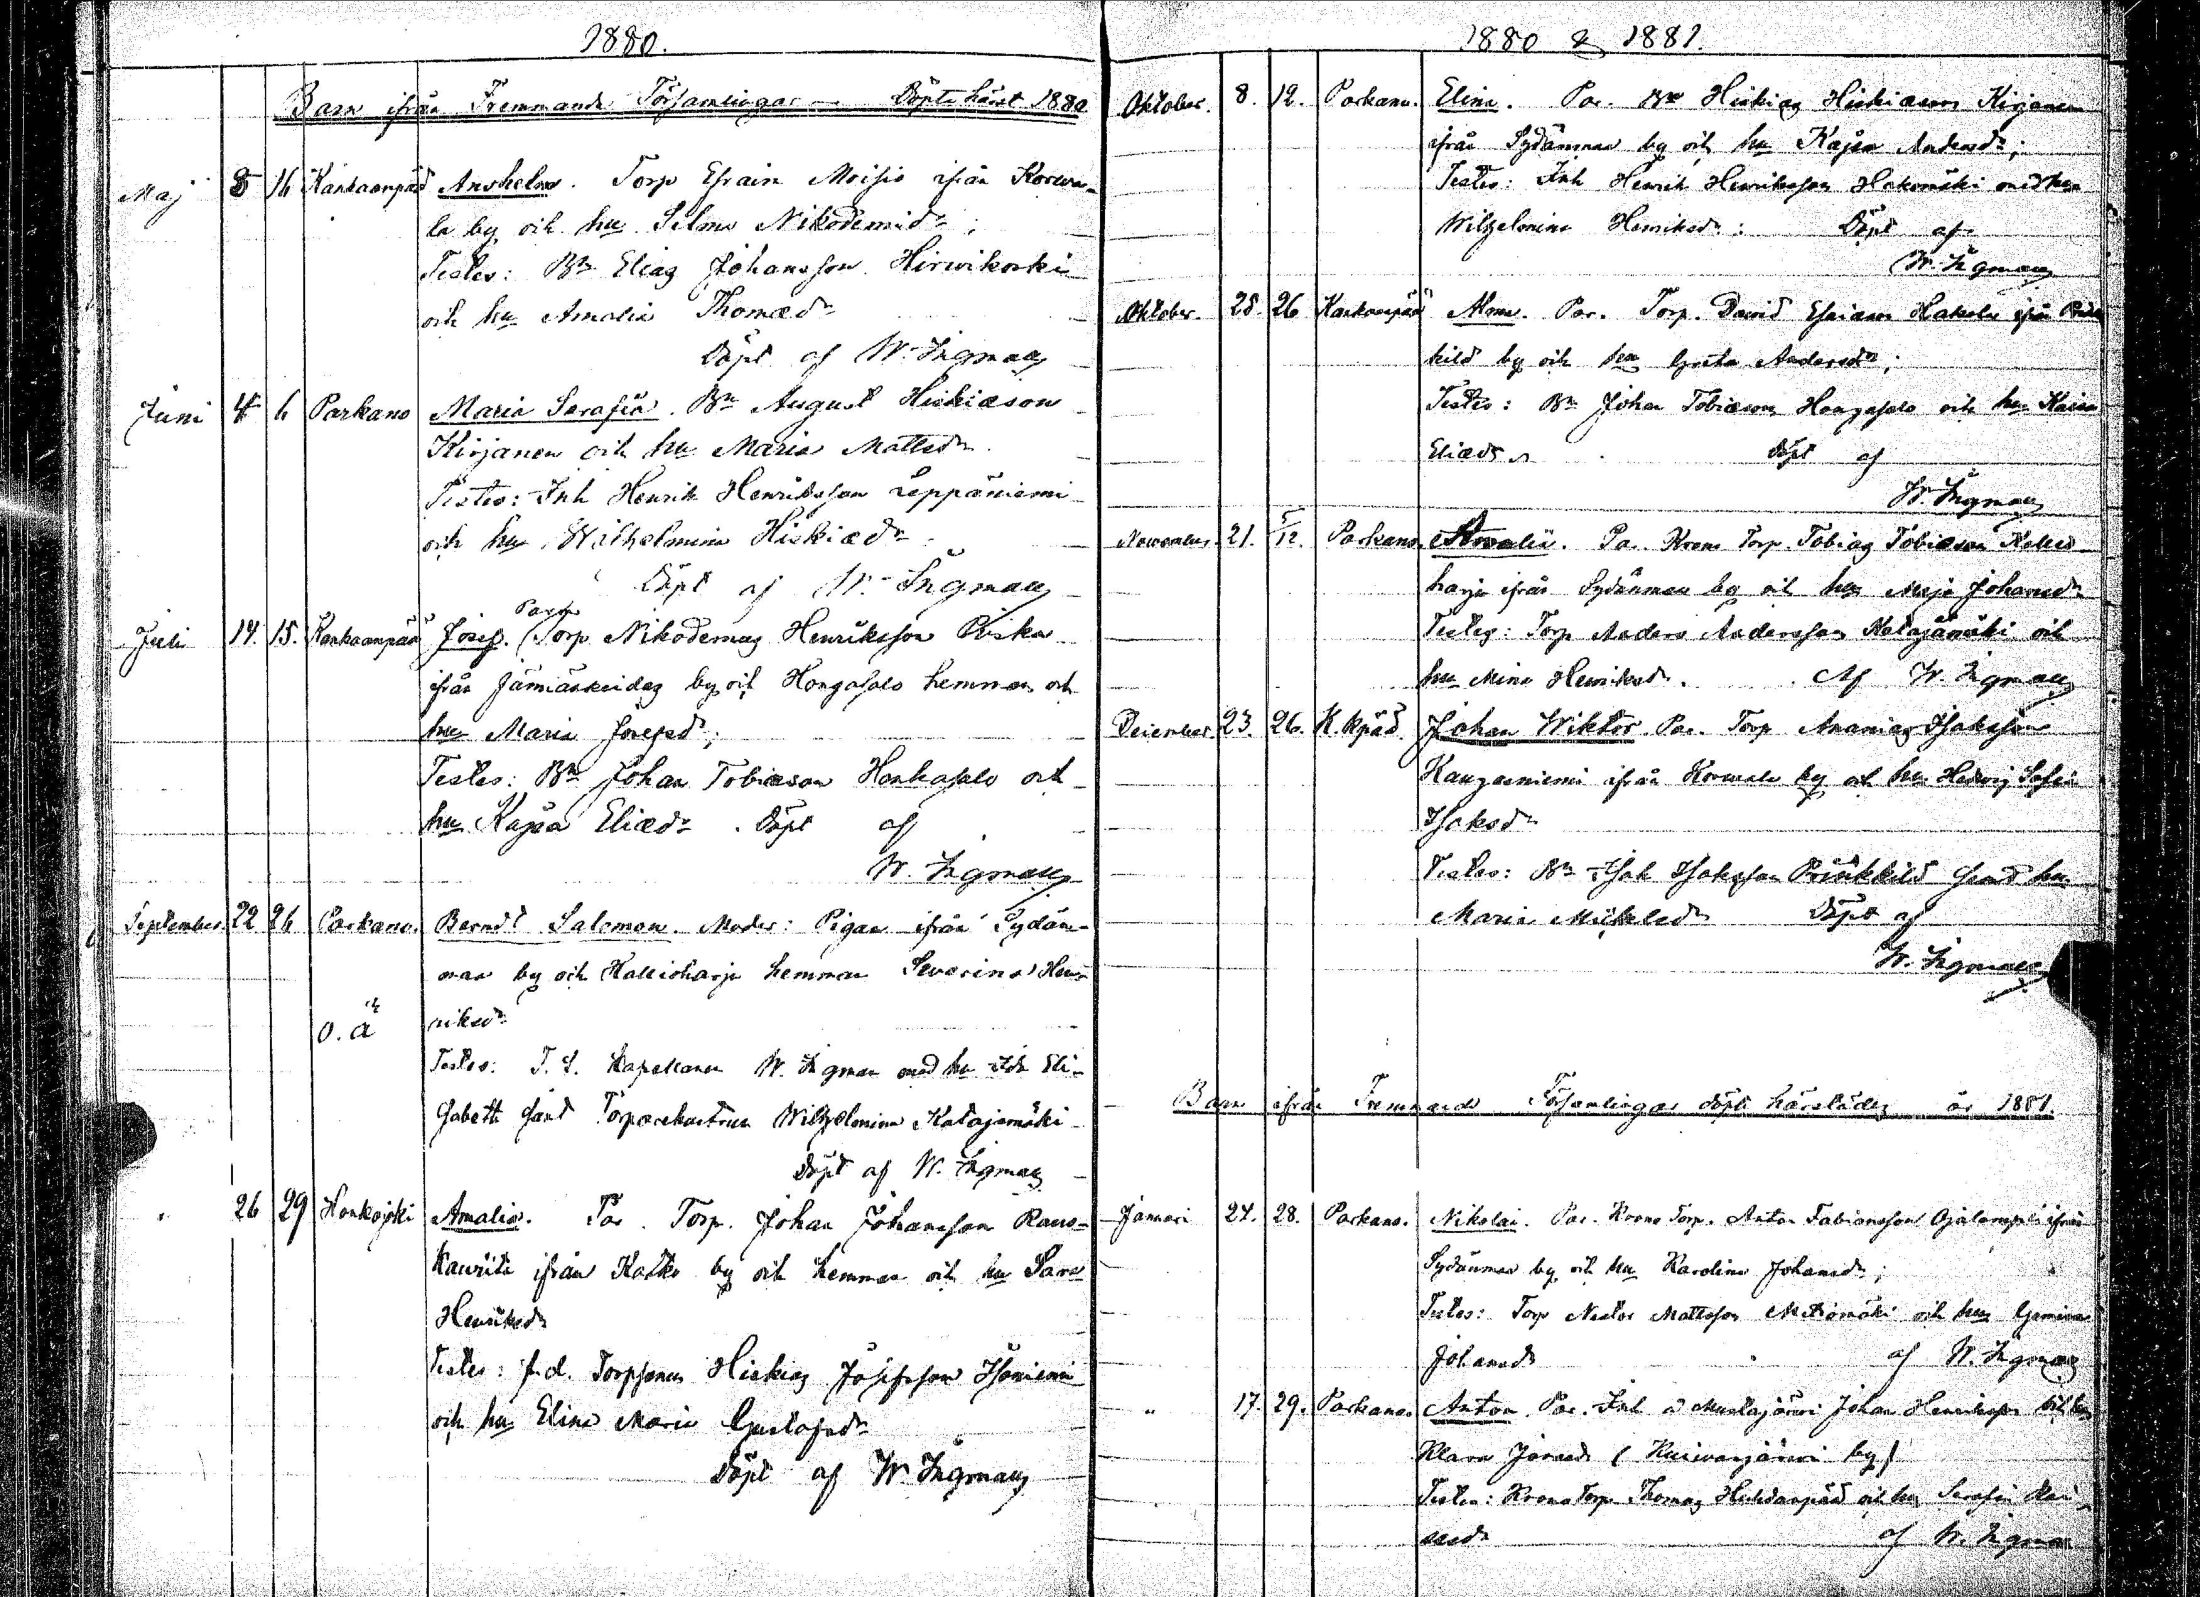 1880.
Barn ifrån Fremmande Församlingar — Döpta härst 1880
Maj 8 16 Kankaanpää Anshelm. Torp Efraim Moisio ifrån Korwa-
la by och hu Selma Nikodemid:
Testes: Bn Elias Johansson Hirwikoski
och hu Amalia Thomæd:
Döpt af W. Ingman
Juni 4 6 Parkano Maria Serafia. Bn August Hiskiæson
Kirjanen och hu Maria Mattsd:
Testes: Inh Henrik Henriksson Leppäniemi
och hu Wilhelmina Hiskiæd:
Döpt af W. Ingman
Juli 14. 15. Kankaanpää Josef. Torp Nikodemus Henriksson
ifrån Jämiäskeidas by och Hongasalo hemman och
hu Maria Josefsd:;
Testes: Bn Johan Tobiæson Honkasalo och
hu Kajsa Eliæd:. Döpt af
W. Ingman
September. 22 26 Parkano. Berndt Salomon. Moder: Pigan ifrån Sydän-
maa by och Kallioharju hemman Severina Hen-
riksd:
o. ä
Testes: T. f. Kapellanen W. Ingman med hu Ida Eli-
sabeth samt Torparehustrun Wilhelmina Katajamäki
Döpt af W. Ingman
" 26 29 Honkajoki Amalia. Par. Torp. Johan Johansson Raus-
kauriita ifrån Katko by och hemman och hu Sara
Henriksd:
Testes: f.d. Torpparen Hiskias Josefsson Isoniemi
och hu Elina Maria Gustafsd:
Döpt af W. Ingman
1880 & 1881.
Oktober. 8. 12. Parkano. Elina. Par. Bn Hiskias Hiskiæson Kirjanen
ifrån Sydänmaa by och hu Kajsa Andersd:;
Testes: Inh Henrik Henriksson Hakomäki med hu
Wilhelmina Henriksd:: Döpt af
W. Ingman
Oktober. 25. 26 Kankaanpää Alma. Par. Torp. David Efraimss Hakala ifrån
kilä by och hu Greta Andersd:;
Testes: Bn Johan Tobiæson Hongasalo och hu Kaisa
Eliæd: Döpt af
W. Ingman
November. 21. 5/12. Parkano. Amalia. Par. Krono Torp. Tobias Tobiæson Kallio-
harju ifrån Sydänmaa by och hu Maja Johansd:
Testes: Torp Anders Andersson Katajamäki och
hu Mina Henriksd:. Af W. Ingman
December 23. 26. K.kpää. Johan Wiktor. Par. Torp Ananias Isaksson
Kangasniemi ifrån Korwala by och hu Hedvig Sofia
Isaksd:
Testes: Bn Isak Isaksson Prinkkilä samt hu
Maria Mickelsd: Döpt af
W. Ingman
Barn ifrån Fremmande Församlingar döpta härstädes år 1881.
Januari 24. 28. Parkano. Nikolai. Par. Krono Torp. Anton Fabiansson Ojalampi ifrån
Sydänmaa by och hu Karolina Johansd:;
Testes: Torp Nestor Mattsson och hu
Johansd: af W. Ingman
" 17. 29. Parkano. Anton. Par. Inh à Mustajärwi Johan Henriksson och hu
Klara Jonasd: (Kuivasjärwi by)
Testes: Krono Torp Thomas och hu Serafia
af W. Ingman